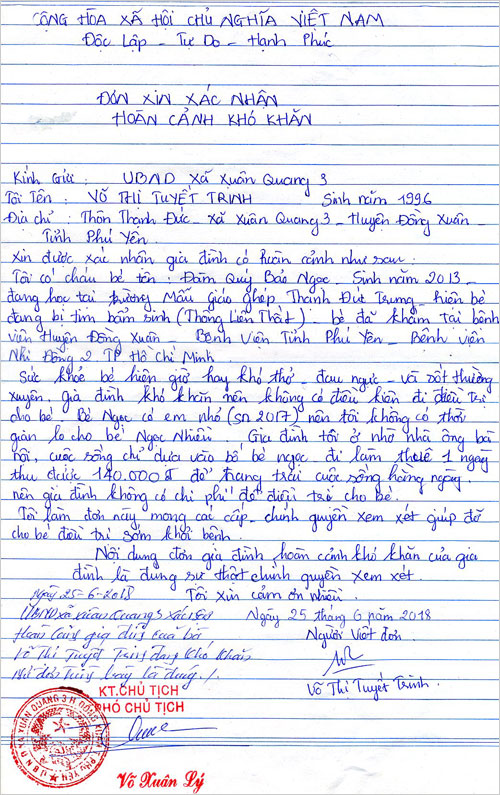 CỘNG HÒA XÃ HỘI CHỦ NGHĨA VIỆT NAM
Độc Lập - Tự Do - Hạnh Phúc
ĐƠN XIN XÁC NHẬN
HOÀN CẢNH KHÓ KHĂN
Kính Gửi : UBND xã Xuân Quang 3
Tôi Tên : VÕ THỊ TUYẾT TRINH Sinh năm 1996
Địa chỉ : Thôn Thạnh Đức - xã Xuân Quang 3 - Huyện Đồng Xuân -
Tỉnh Phú Yên
Xin được xác nhận gia đình có hoàn cảnh như sau:
Tôi có cháu bé tên : Đàm Quý Bảo Ngọc - Sinh năm 2013 -
đang học tại trường Mẫu giáo ghép Thạnh Đức Trung - hiện bé
đang bị tim bẩm sinh (Thông Liên Thất) - bé đã khám tại bệnh
viện Huyện Đồng Xuân - Bệnh Viện Tỉnh Phú Yên - Bệnh viện
Nhi Đồng 2 TP Hồ Chí Minh.
Sức khỏe bé hiện giờ hay khó thở - đau ngực - và sốt thường
xuyên, gia đình khó khăn nên không có điều kiện đi điều trị
cho bé. Bé Ngọc có em nhỏ (sn 2017) nên tôi không có thời
gian lo cho bé Ngọc Nhiều. Gia đình tôi ở nhờ nhà ông bà
nội, cuộc sống chỉ dựa vào bố bé ngọc đi làm thuê 1 ngày
thu được 140.000đ để trang trải cuộc sống hằng ngày.
nên gia đình không có chi phí để điều trị cho bé.
Tôi làm đơn này mong các cấp - chính quyền xem xét giúp đỡ
cho bé điều trị sớm khỏi bệnh.
Nội dung đơn gia đình hoàn cảnh khó khăn của gia
đình là đúng sự thật chính quyền xem xét.
Tôi xin cảm ơn nhiều.
Ngày 25-6-2018
UBND xã Xuân Quang 3 xác nhận
Hoàn cảnh gia đình của bà
Võ Thị Tuyết Trinh đang khó khăn
như đơn trình bày là đúng./.
Ngày 25 tháng 6 năm 2018
Người viết đơn
Võ Thị Tuyết Trinh.
KT.CHỦ TỊCH
PHÓ CHỦ TỊCH
U.B.N.D XÃ XUÂN QUANG 3 H. ĐỒNG XUÂN PHÚ YÊN
Võ Xuân Lý